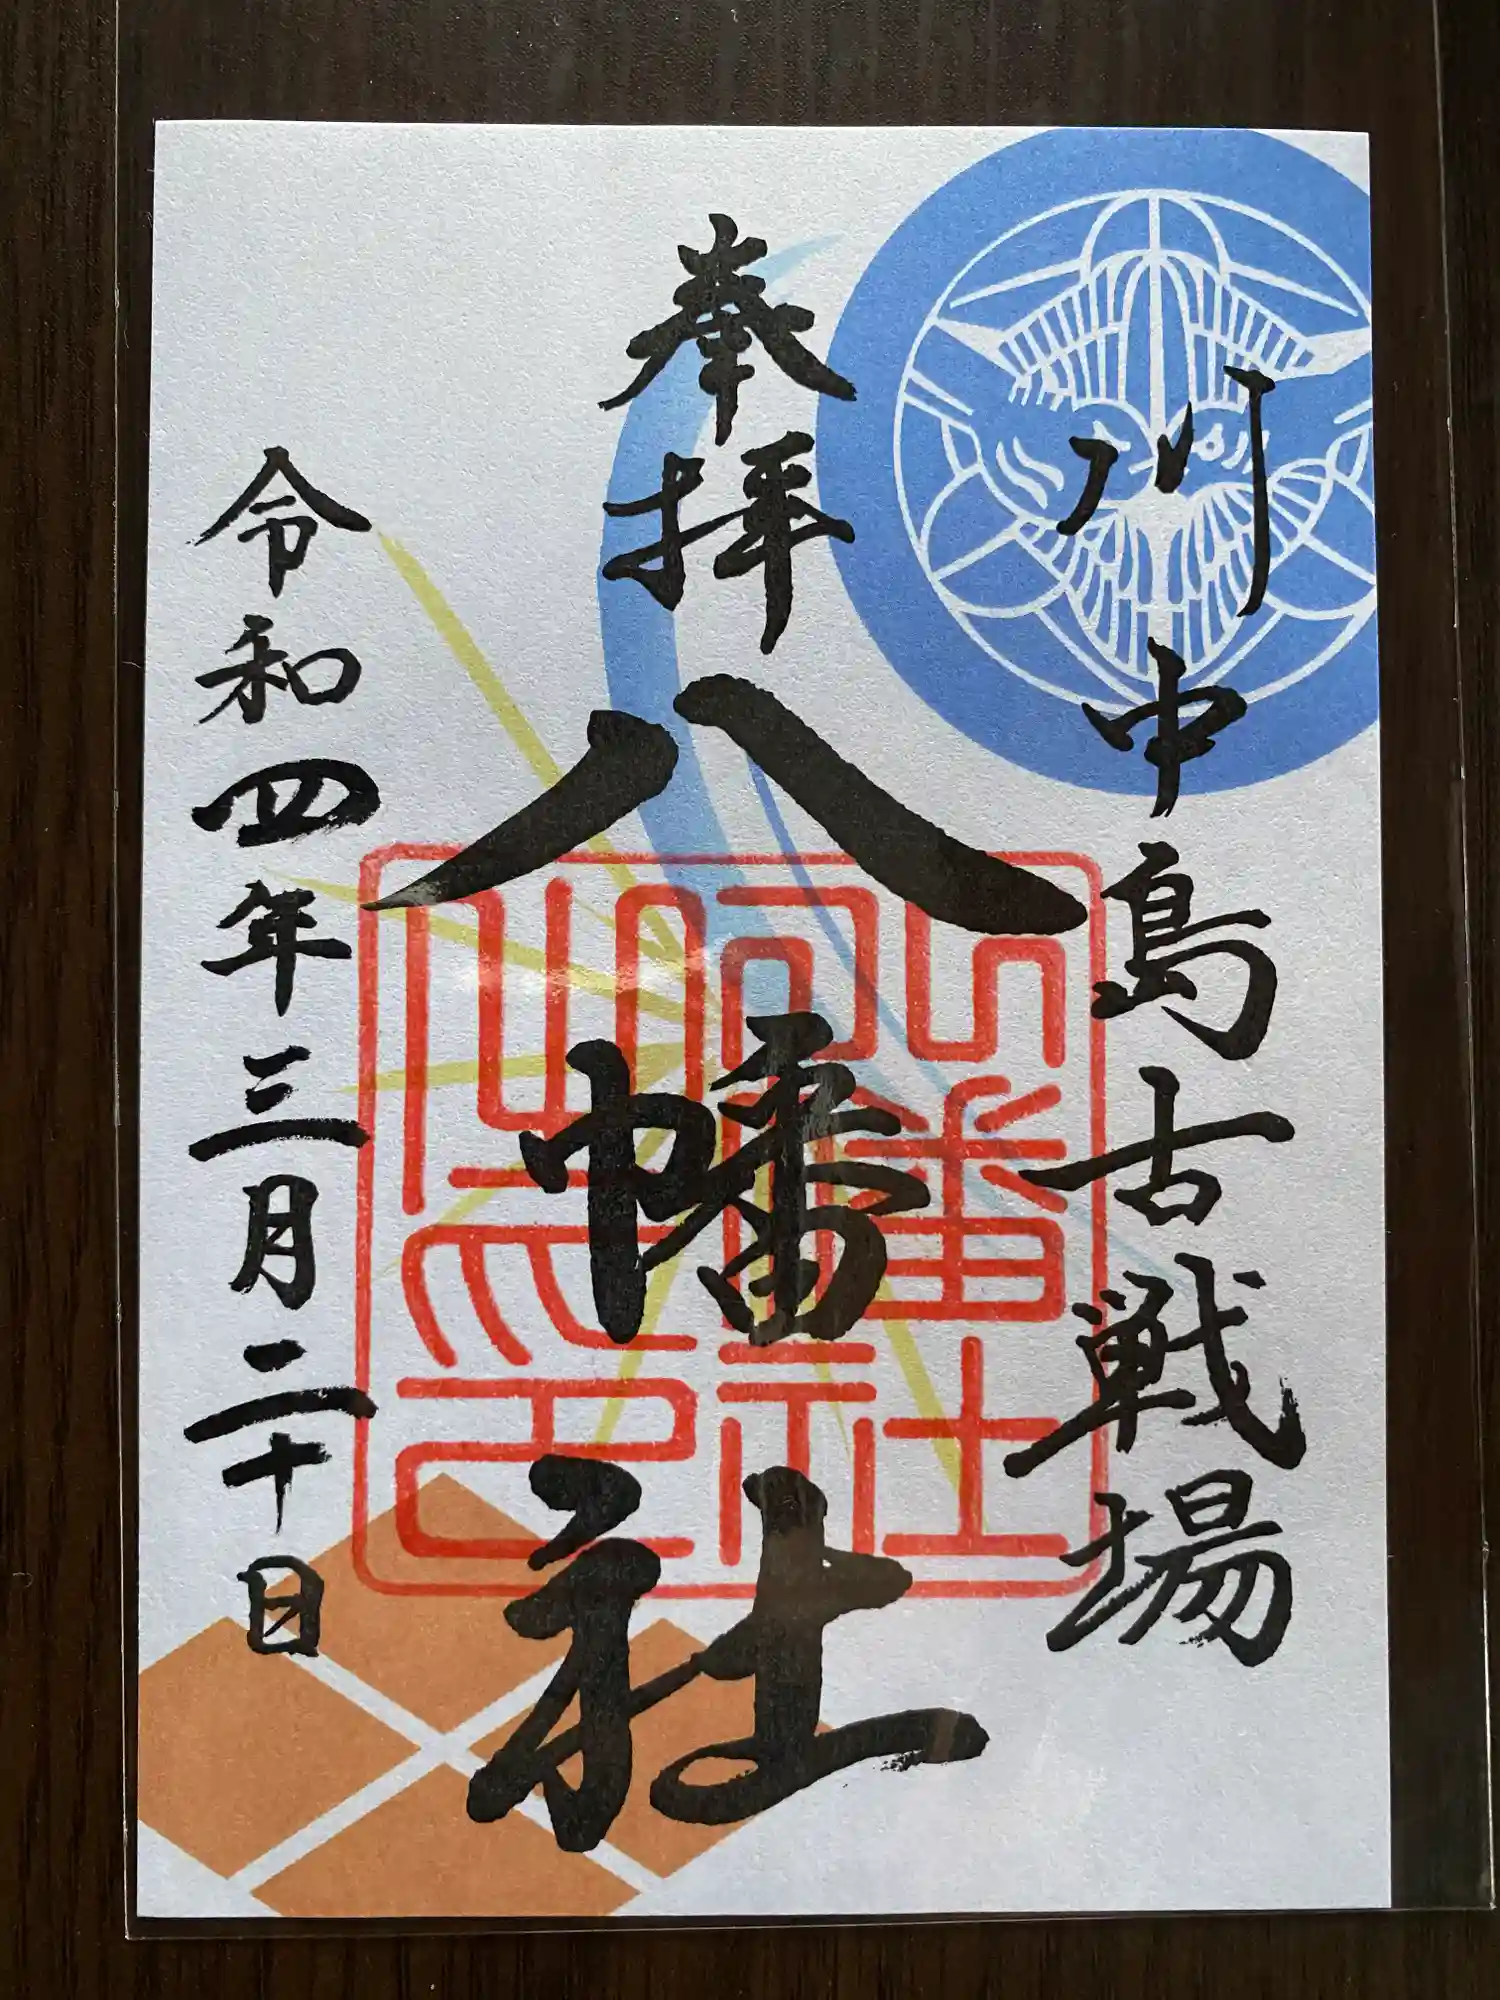 川中島古戦場
奉拝
八幡社
令和四年三月二十日